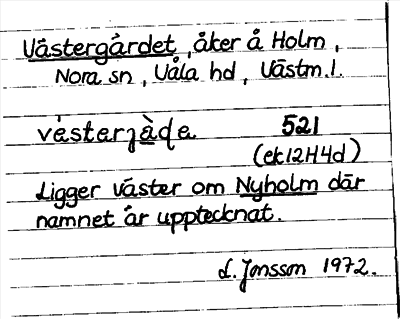 Västergärdet, åker å Holm,
Nora sn, Våla hd, Västm.l.
västerjä̀de 521
(ek 12H4d)
Ligger väster om Nyholm där
namnet är upptecknat.
L. Jonsson 1972.